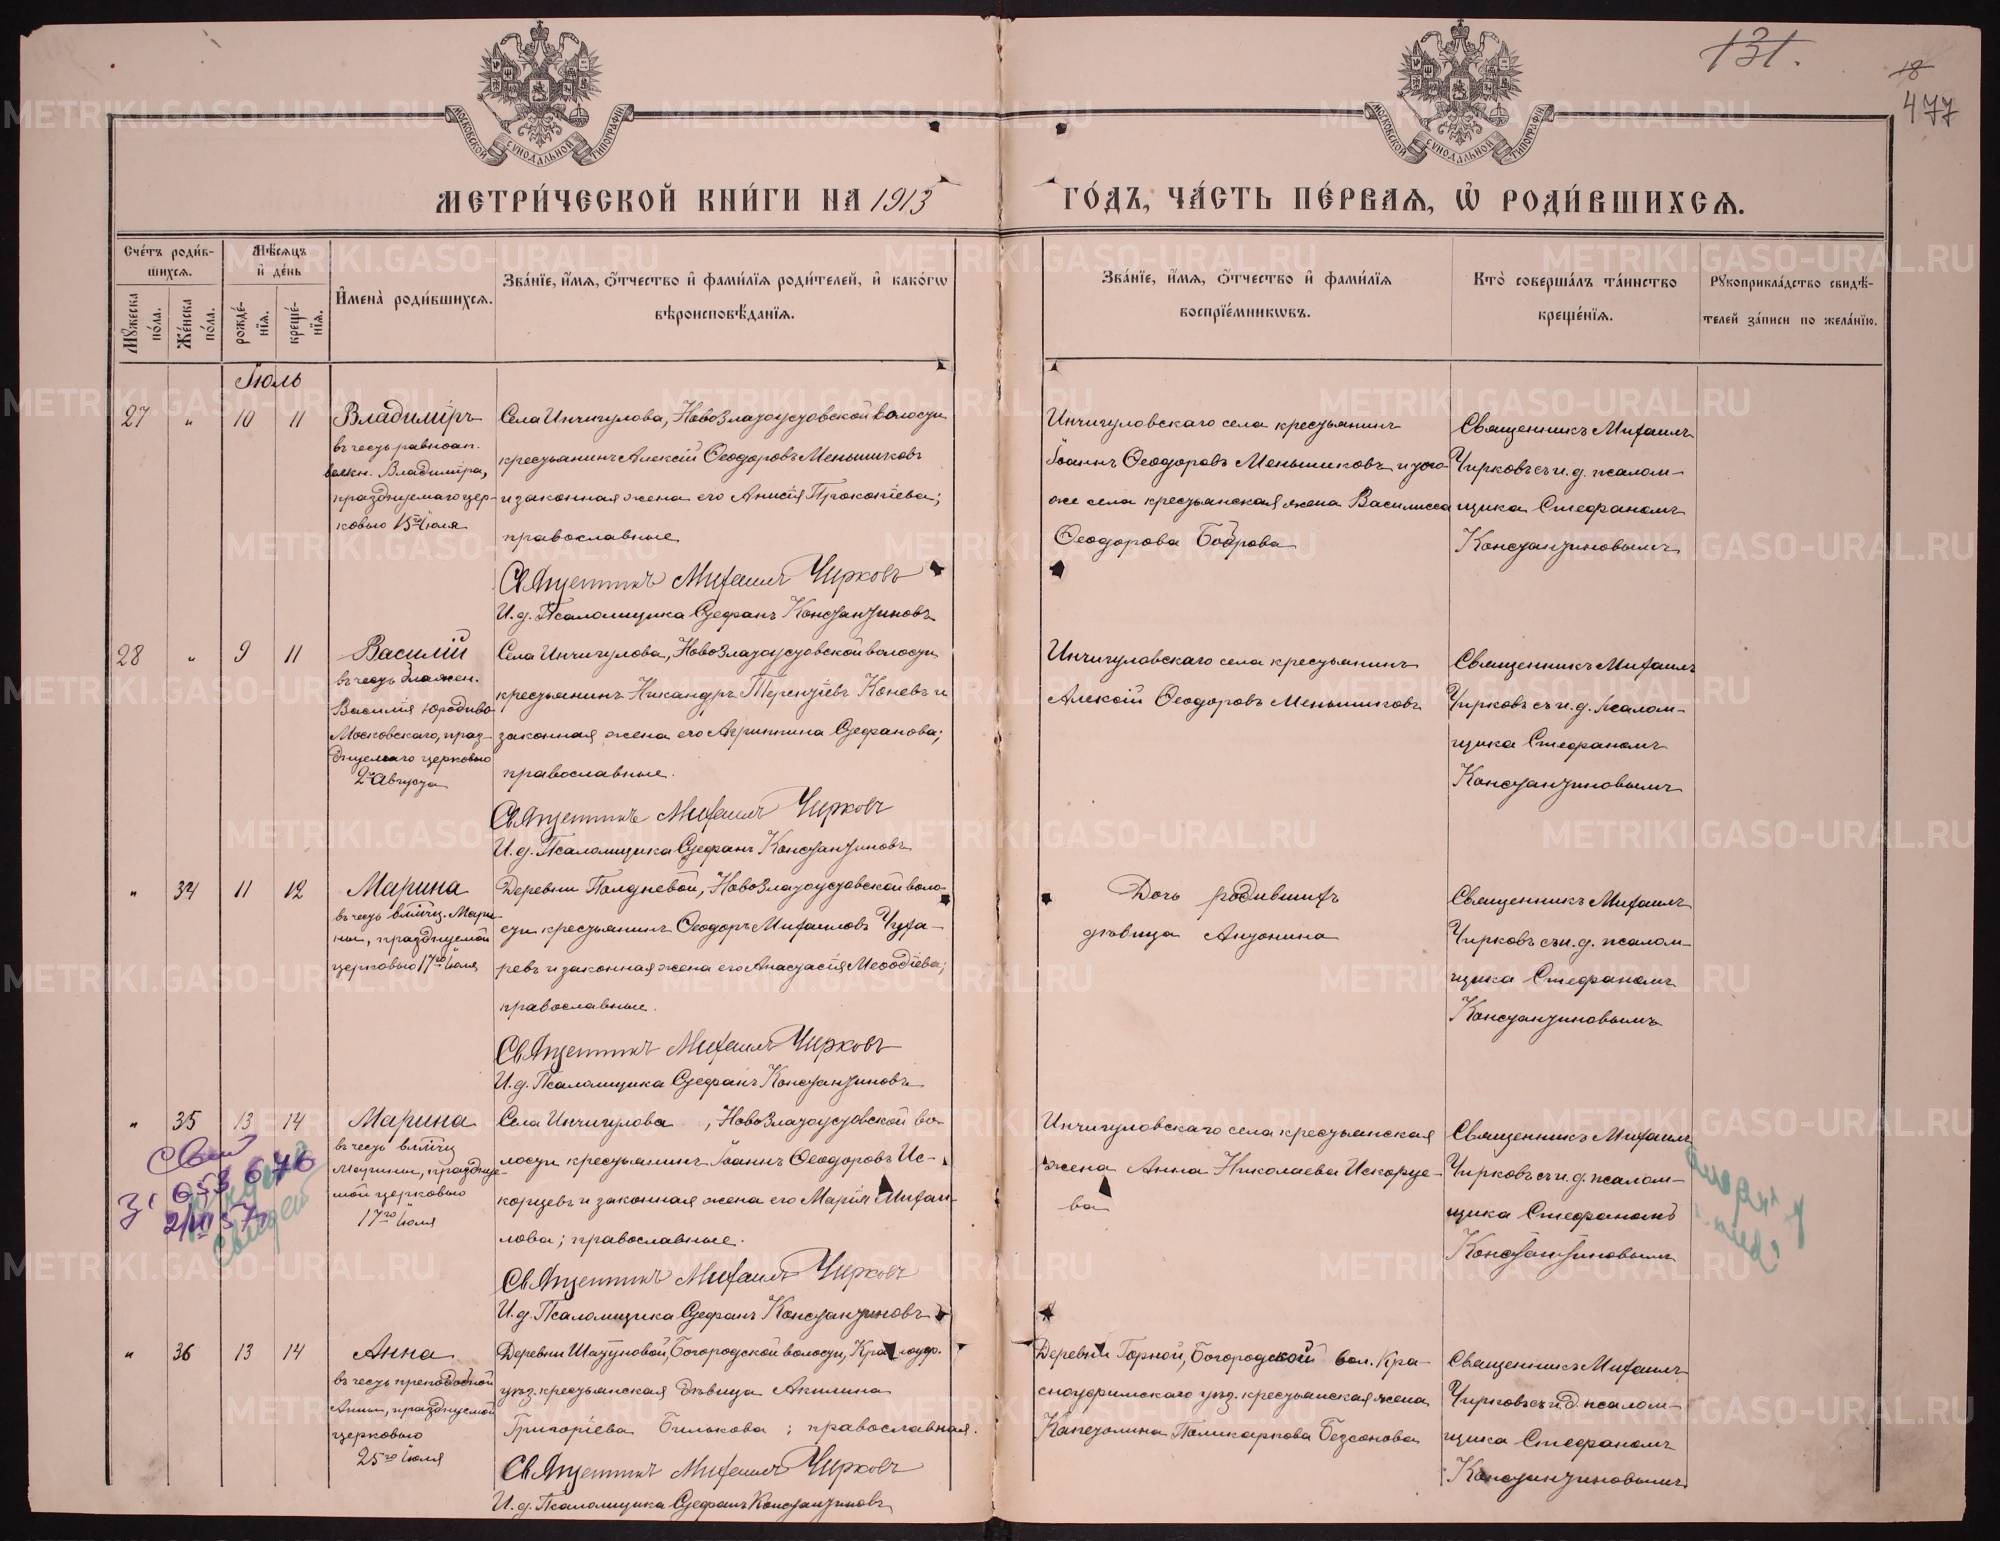 131.
18
477
МОСКОВСКОЙ СУНОДАЛЬНОЙ ТИПОГРАФІИ
МОСКОВСКОЙ СУНОДАЛЬНОЙ ТИПОГРАФІИ
МЕТРИ́ЧЕСКОЙ КНИ́ГИ НА 1913 ГО́ДЪ, ЧА́СТЬ ПЕ́РВАѦ, Ѡ҆ РОДИ́ВШИХСѦ.
Сче́тъ роди́в-
шихсѧ.
Мꙋжеска по́ла.
Же́нска по́ла.
Мѣ́сѧцъ и҆ де́нь
рожде́-нїѧ.
креще́-нїѧ.
И҆мена̀ роди́вшихсѧ.
Зва́нїе, и҆́мѧ, ѻ҆́тчество и҆ фами́лїѧ роди́телей, и҆ како́гѡ
вѣроисповѣ́данїѧ.
Зва́нїе, и҆́мѧ, ѻ҆́тчество и҆ фами́лїѧ
воспрїе́мникѡвъ.
Кто̀ соверша́лъ та́инство
креще́нїѧ.
Рꙋкоприкла́дство свидѣ́-
телей за́писи по жела́нїю.
Іюль
27 " 10 11
Владиміръ
въ честь равноап.
велкн. Владиміра,
празднуемаго цер-
ковью 15го Іюля
Села Инчигулова, НовоЗлатоустовской волости
крестьянинъ Алексій Ѳеодоровъ Меньшиковъ
и законная жена его Анисія Прокопіева;
православные
Священникъ Михаилъ Чирковъ
И. д. Псаломщика Стефанъ Константиновъ
Инчигуловскаго села крестьянинъ
Іоаннъ Ѳеодоровъ Меньшиковъ и того-
же села крестьянская жена Василисса
Ѳеодорова Боброва
Священникъ Михаилъ
Чирковъ съ и. д. псалом-
щика Стефаномъ
Константиновымъ
28 " 9 11
Василій
въ честь блажен.
Василія Юродиво
Московскаго, праз-
днуемаго церковью
2го Августа
Села Инчигулова, НовоЗлатоустовской волости
крестьянинъ Никандръ Терентіевъ Коневъ и
законная жена его Агриппина Стефанова;
православные.
Священникъ Михаилъ Чирковъ
И. д. Псаломщика Стефанъ Константиновъ
Инчигуловскаго села крестьянинъ
Алексій Ѳеодоровъ Меньшиковъ
Священникъ Михаилъ
Чирковъ съ и. д. псалом-
щика Стефаномъ
Константиновымъ
" 34 11 12
Марина
въ честь влмчц. Мари-
ны, празднуемой
церковью 17го Іюля
Деревни Полдневой, НовоЗлатоустовской воло-
сти крестьянинъ Ѳеодоръ Михаиловъ Чуха-
ревъ и законная жена его Анастасія Меѳодіева;
православные.
Священникъ Михаилъ Чирковъ
И. д. Псаломщика Стефанъ Константиновъ
Дочь родившихъ
дѣвица Антонина
Священникъ Михаилъ
Чирковъ съ и. д. псалом-
щика Стефаномъ
Константиновымъ
" 35 13 14
Марина
въ честь влмчц
Марины, празднуе-
мой церковью
17го Іюля
Села Инчигулова, НовоЗлатоустовской во-
лости крестьянинъ Іоаннъ Ѳеодоровъ Ис-
корцевъ и законная жена его Марія Михаи-
лова; православные.
Священникъ Михаилъ Чирковъ
И. д. Псаломщика Стефанъ Константиновъ
Инчигуловскаго села крестьянская
жена Анна Николаева Искорце-
ва
Священникъ Михаилъ
Чирковъ съ и. д. псалом-
щика Стефаномъ
Константиновымъ
" 36 13 14
Анна
въ честь преподобной
Анны, празднуемой
церковью
25го Іюля
Деревни Шатуновой, Богородской волости, Красноуф.
уѣз. крестьянская дѣвица Акилина
Григоріева Билькова; православная.
Священникъ Михаилъ Чирковъ
И. д. Псаломщика Стефанъ Константиновъ
Деревни Горной, Богородской вол. Кра-
сноуфимскаго уѣз. крестьянская жена
Капетолина Поликарпова Безсонова
Священникъ Михаилъ
Чирковъ съ и д. псалом-
щика Стефаномъ
Константиновымъ
METRIKI.GASO-URAL.RU